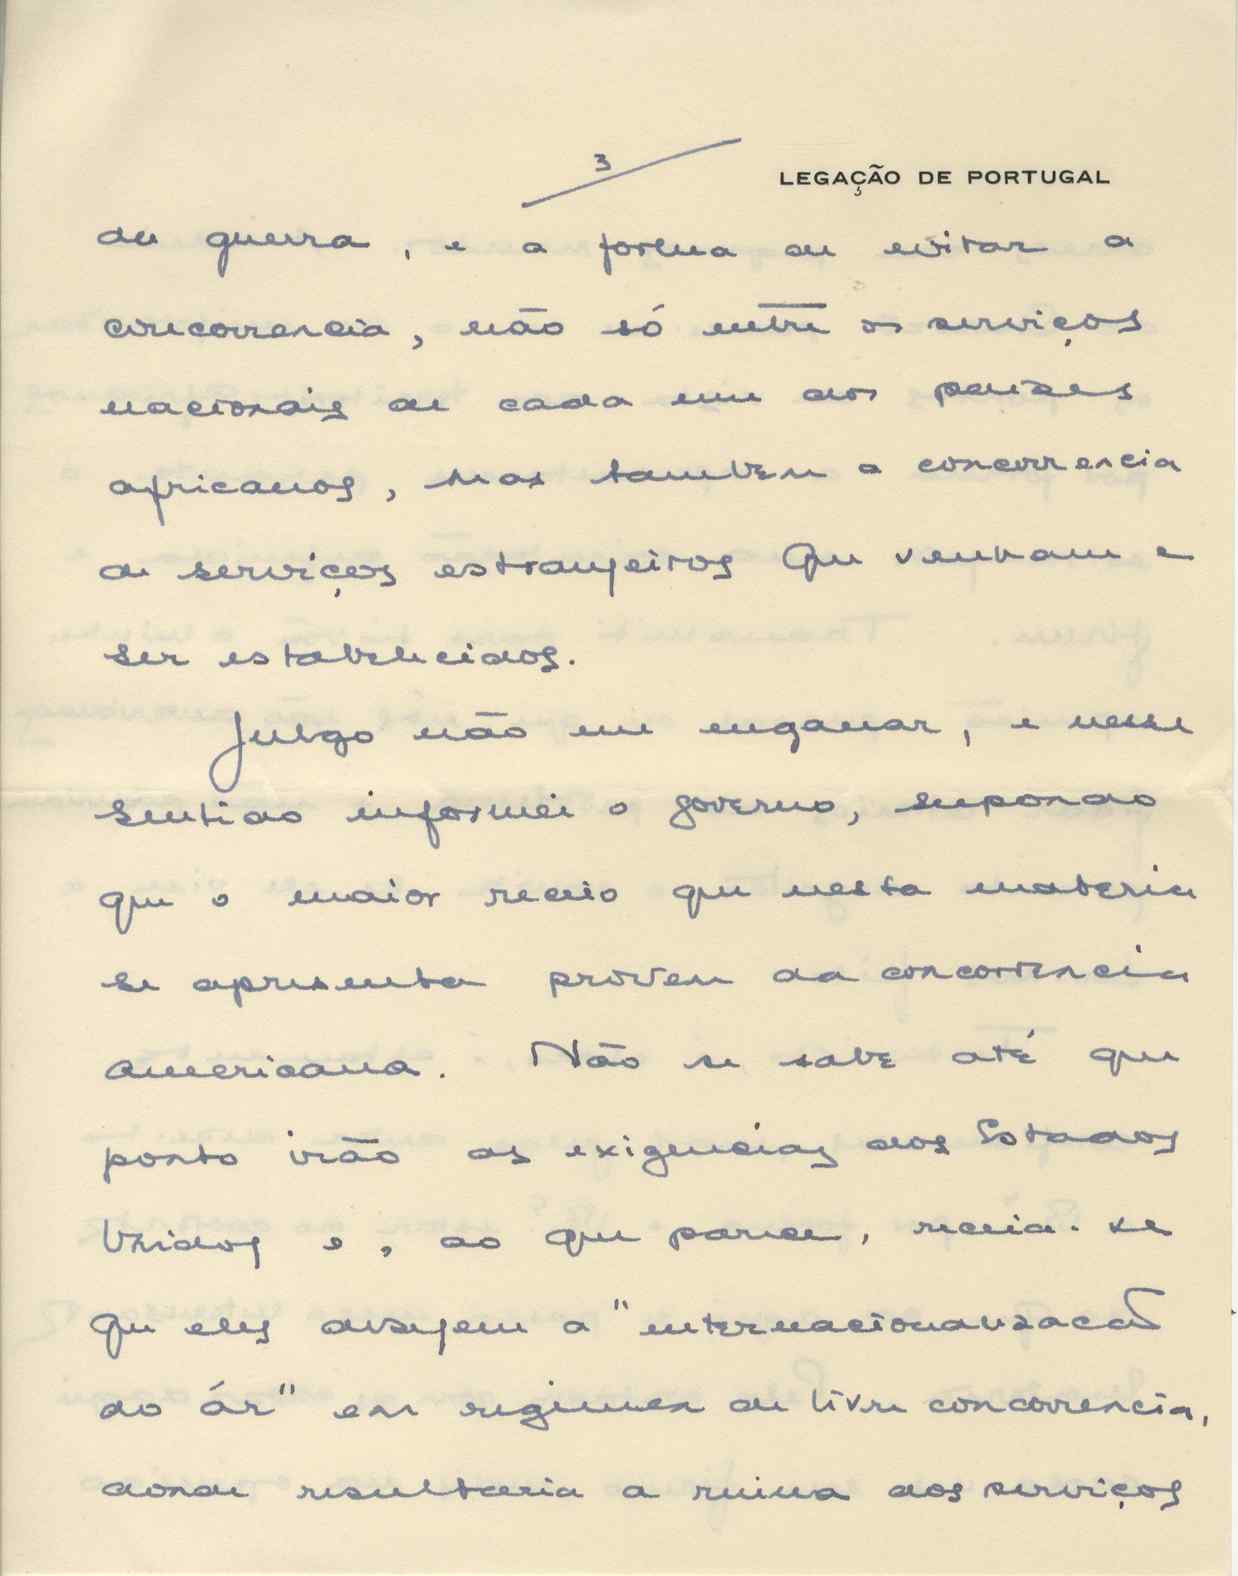 3
LEGAÇÃO DE PORTUGAL
de guerra, e a forma de evitar a
concorrencia, não só entre os serviços
nacionais de cada um dos paizes
africanos, mas tambem a concorrencia
de serviços estranjeiros que venham a
ser estabelecidos.
Julgo não me enganar, e nesse
sentido informei o governo, supondo
que o maior receio que nesta materia
se apresenta provem da concorrencia
americana. Não se sabe até que
ponto irão as exigencias dos Estados
Unidos e, ao que parece, receia-se
que eles desejem a "internacionalização
do ár" em regimen de livre concorrencia,
donde resultaria a ruina dos serviços